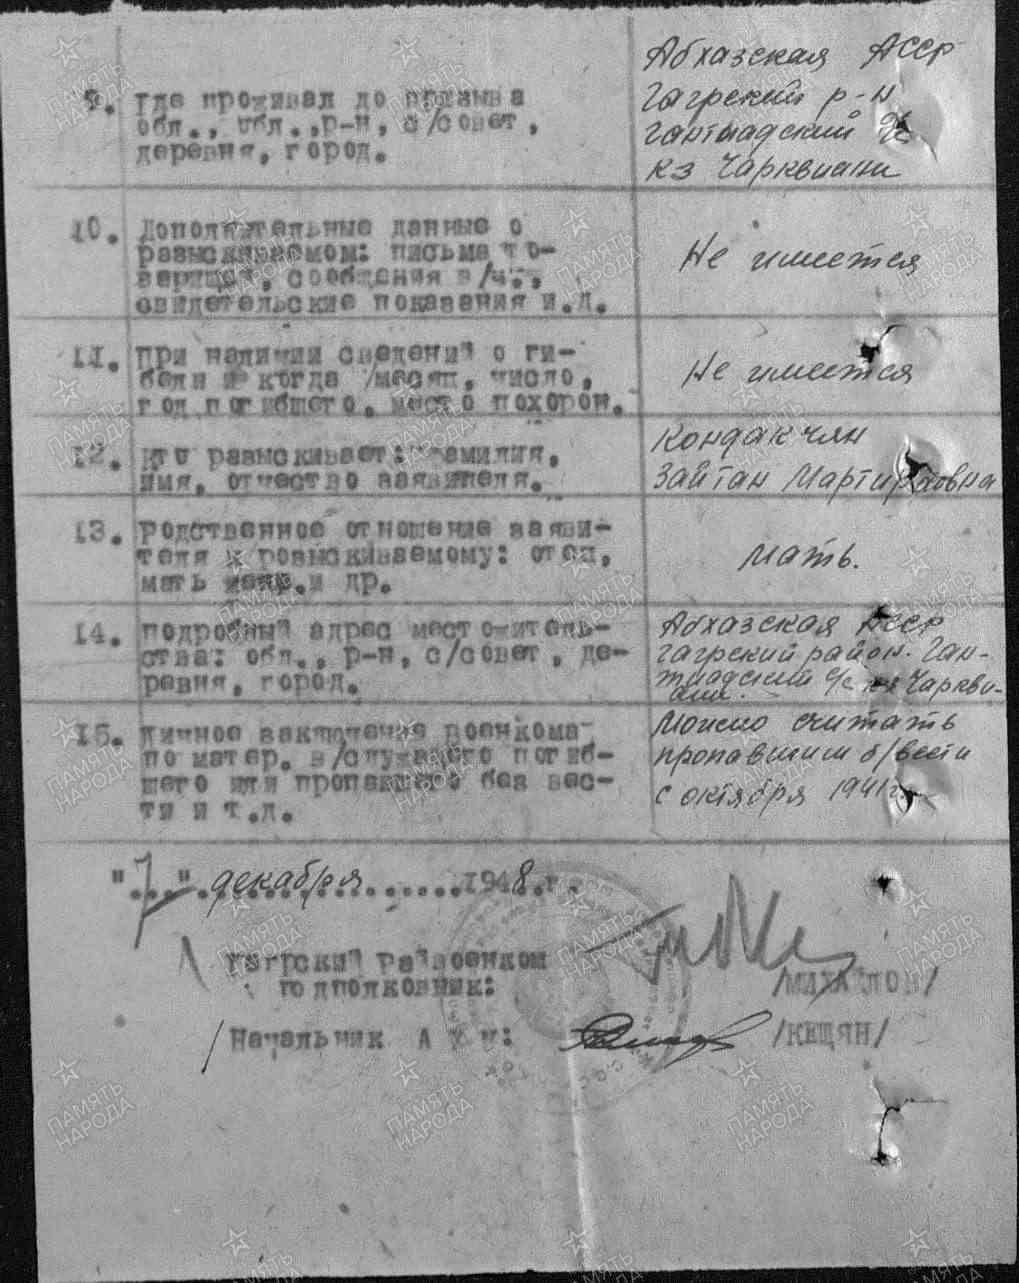 9. где проживал до призыва
обл., обл., р-н, с/совет,
деревня, город.
Абхазская АССР
Гагрский р-н
Гантиадский
кз Чарквиани
10. Дополнительные данные о
разыскиваемом: письма то-
варищей, сообщения в/ч.,
свидетельские показания и.д.
Не имеется
11. при наличии сведений о ги-
бели и когда /месяц, число,
год погибшего, место похорон.
Не имеется
12. кто разыскивает: фамилия,
имя, отчество заявителя.
Кондакчян
Зайтан Мартиросовна
13. Родственное отношение заяви-
теля к розыскиваемому: отец,
мать и др.
Мать.
14. подробный адрес местожитель-
ства: обл., р-н, с/совет, де-
ревня, город.
Абхазская АССР
Гагрский район. Ган-
тиадский с/с кз Чаркви-
ани.
15. личное заключение военкома
по матер. в/служащего погиб-
шего или пропавшего без вес-
ти и т.д.
Можно считать
пропавшим б/вести
с октября 1941 г.
"7" декабря 1948.г.
Гагрский райвоенком
подполковник:
/МИХАЙЛОВ/
/Начальник А Х Ч:
/КЕЩЯН/
ПАМЯТЬ
НАРОДА